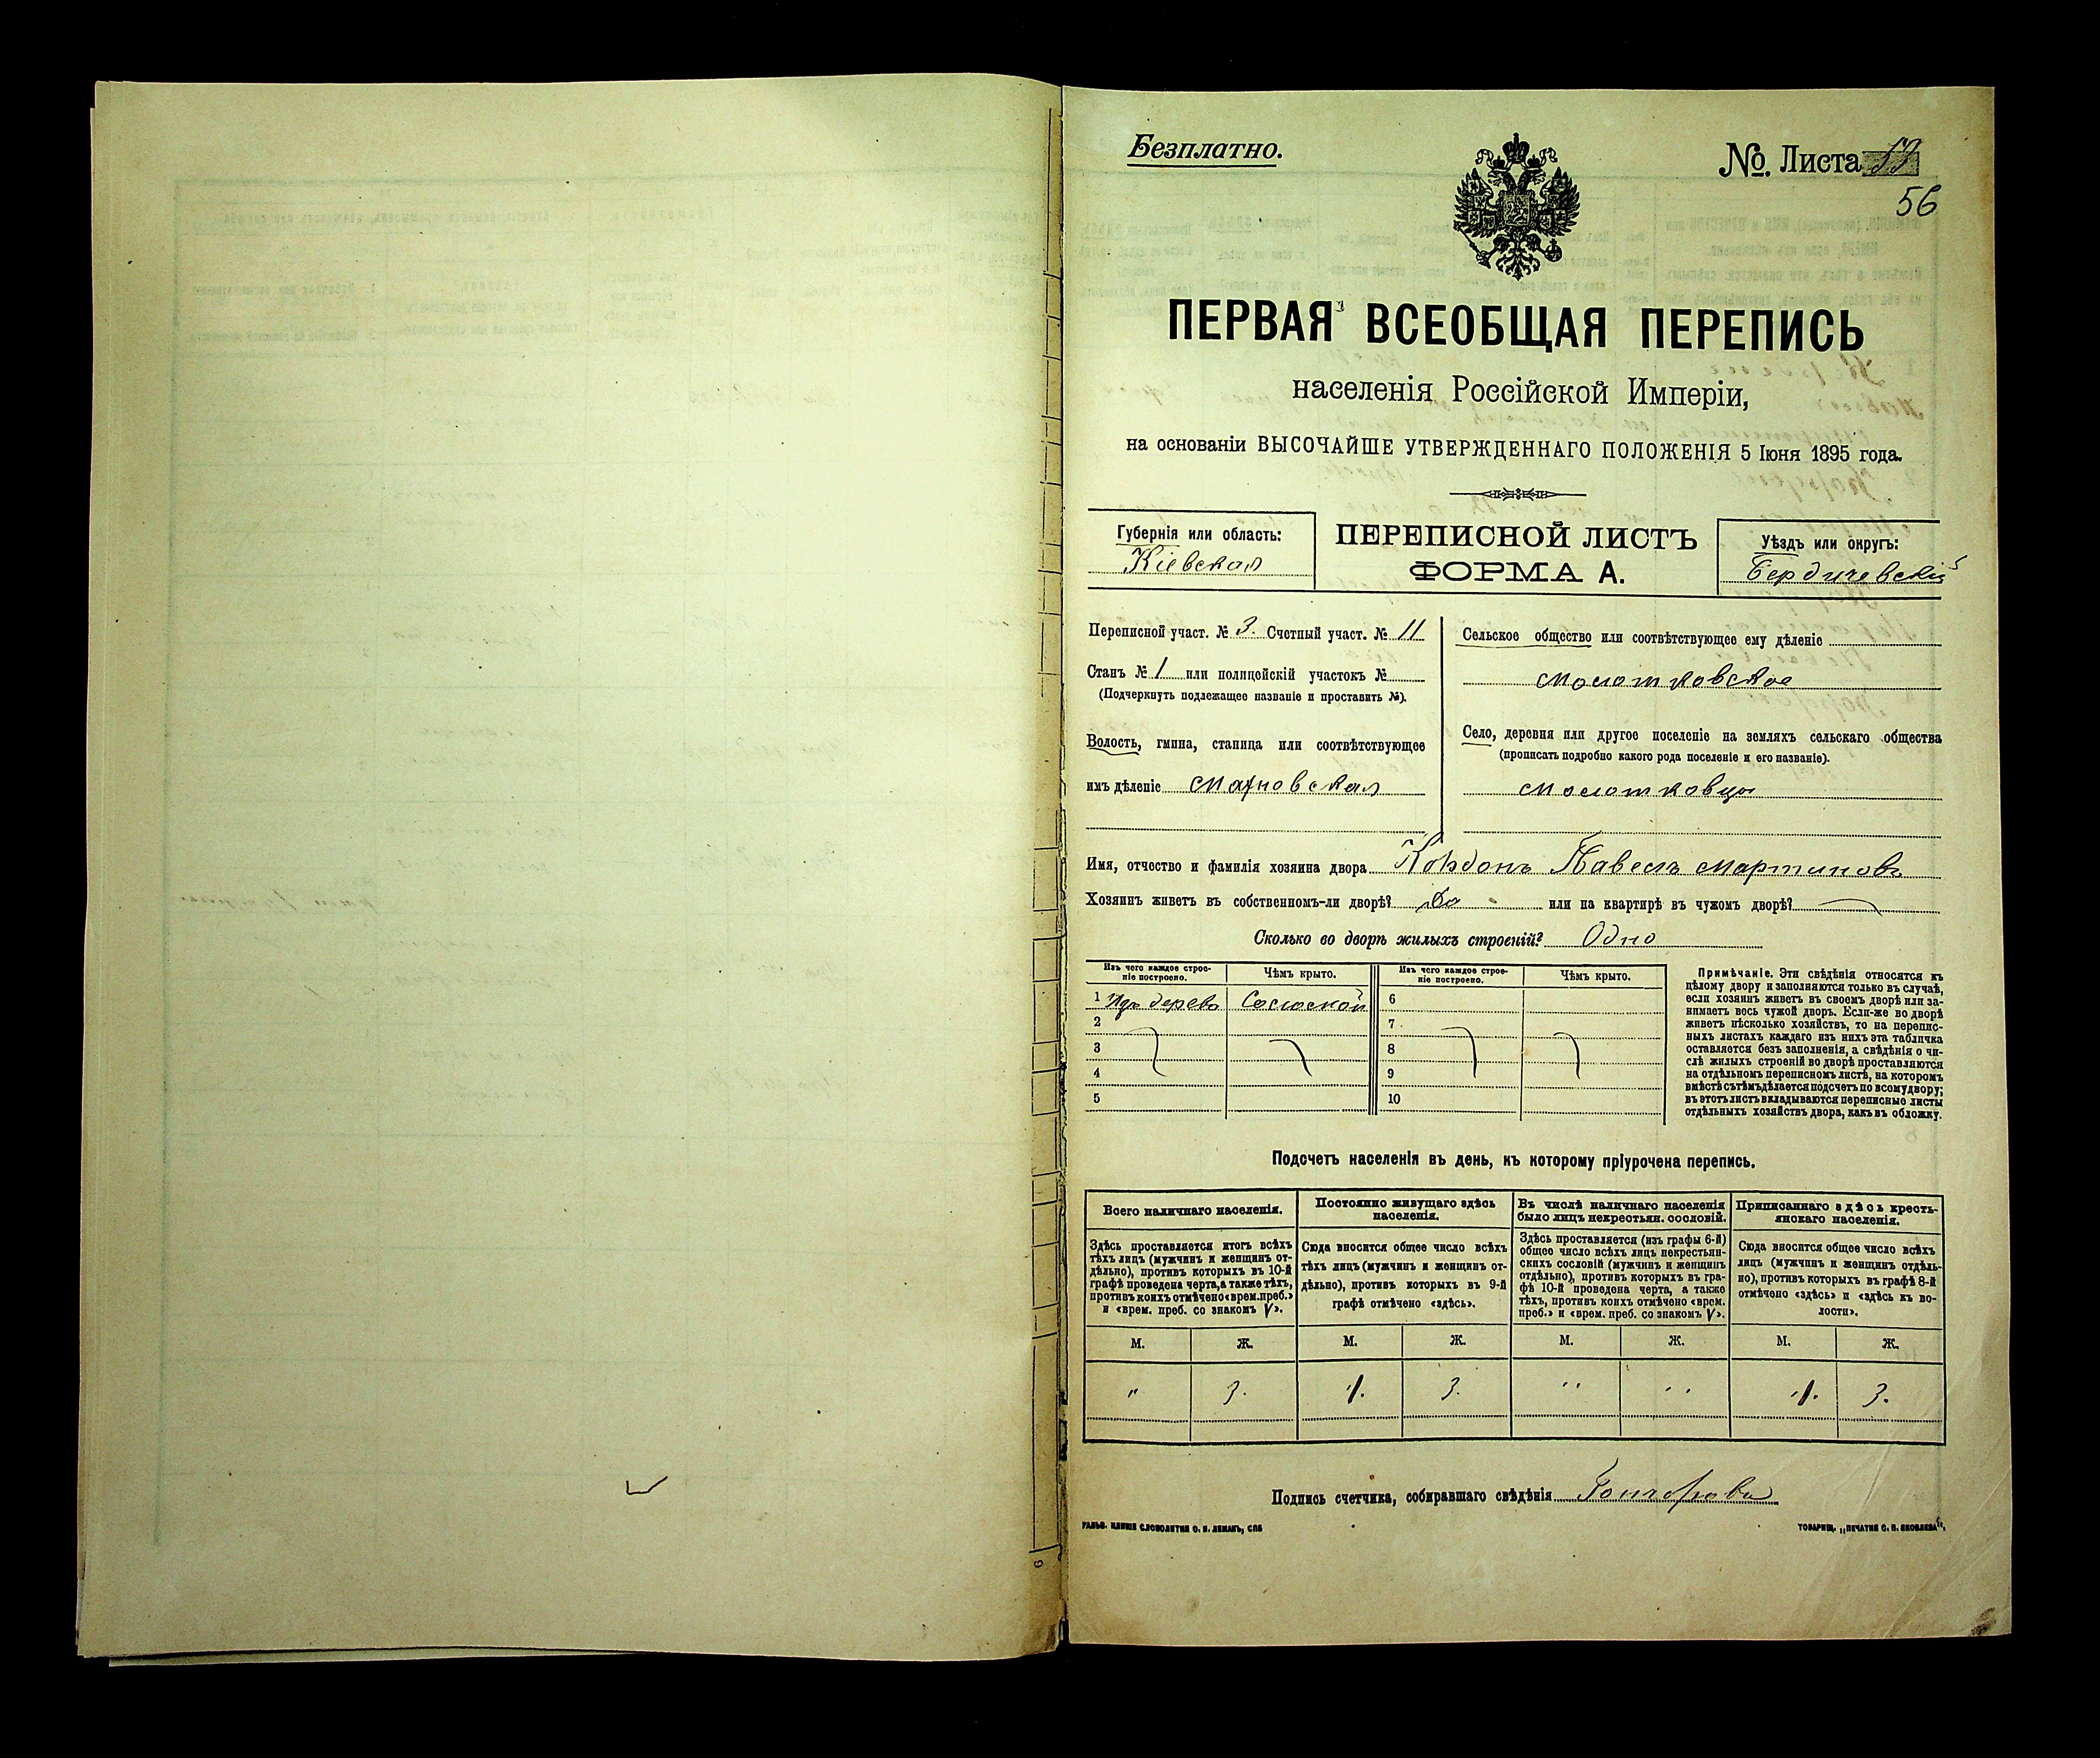 Безплатно.
№. Листа 53
56
ПЕРВАЯ ВСЕОБЩАЯ ПЕРЕПИСЬ
населенія Россійской Имперіи,
на основаніи ВЫСОЧАЙШЕ УТВЕРЖДЕННАГО ПОЛОЖЕНІЯ 5 Іюня 1895 года.
Губернія или область:
Кіевская
ПЕРЕПИСНОЙ ЛИСТЪ
ФОРМА А.
Уѣздъ или округъ:
Бердичевскій
Переписной участ. № 3. Счетный участ. № 11
Станъ № 1 или полицейскій участокъ №
(Подчеркнуть подлежащее названіе и проставить №).
Волость, гмина, станица или соотвѣтствующее
имъ дѣленіе Махновская
Сельское общество или соотвѣтствующее ему дѣленіе
Молотковское
Село, деревня или другое поселеніе на земляхъ сельскаго общества
(прописать подробно какого рода поселеніе и его названіе).
Молотковцы
Имя, отчество и фамилія хозяина двора Кордонъ Павелъ Мартиновъ
Хозяинъ живетъ въ собственномъ-ли дворѣ? Да или на квартирѣ въ чужомъ дворѣ?
Сколько во дворѣ жилыхъ строеній? Одно
Изъ чего каждое строе-
ніе построено.
Чѣмъ крыто.
Изъ чего каждое строе-
ніе построено.
Чѣмъ крыто.
1 Изъ дерева Соломой 6
2 7
3 8
4 9
5 10
Примѣчаніе. Эти свѣдѣнія относятся къ
цѣлому двору и заполняются только въ случаѣ,
если хозяинъ живетъ въ своемъ дворѣ или за-
нимаетъ весь чужой дворъ. Если-же во дворѣ
живетъ нѣсколько хозяйствъ, то на перепис-
ныхъ листахъ каждаго изъ нихъ эта табличка
оставляется безъ заполненія, а свѣдѣнія о чи-
слѣ жилыхъ строеній во дворѣ проставляются
на отдѣльномъ переписномъ листѣ, на которомъ
вмѣстѣ съ тѣмъ дѣлается подсчетъ по всему двору;
въ этотъ листъ вкладываются переписные листы
отдѣльныхъ хозяйствъ двора, какъ въ обложку.
Подсчетъ населенія въ день, къ которому пріурочена перепись.
Всего наличнаго населенія.
Здѣсь проставляется итогъ всѣхъ
тѣхъ лицъ (мужчинъ и женщинъ от-
дѣльно), противъ которыхъ въ 10-й
графѣ проведена черта, а также тѣхъ,
противъ коихъ отмѣчено «врем. преб.»
и «врем. преб. со знакомъ V».
Постоянно живущаго здѣсь
населенія.
Сюда вносится общее число всѣхъ
тѣхъ лицъ (мужчинъ и женщинъ от-
дѣльно), противъ которыхъ въ 9-й
графѣ отмѣчено «здѣсь».
Въ числѣ наличнаго населенія
было лицъ некрестьян. сословій.
Здѣсь проставляется (изъ графы 6-й)
общее число всѣхъ лицъ некрестьян-
скихъ сословій (мужчинъ и женщинъ
отдѣльно), противъ которыхъ въ гра-
фѣ 10-й проведена черта, а также
тѣхъ, противъ коихъ отмѣчено «врем.
преб.» и «врем. преб. со знакомъ V».
Приписаннаго здѣсь кресть-
янскаго населенія.
Сюда вносится общее число всѣхъ
лицъ (мужчинъ и женщинъ отдѣль-
но), противъ которыхъ въ графѣ 8-й
отмѣчено «здѣсь» и «здѣсь къ во-
лости».
М. Ж. М. Ж. М. Ж. М. Ж.
" 3. 1. 3. " " 1. 3.
Подпись счетчика, собиравшаго свѣдѣнія
ГАЛЬВ. КЛИШЕ СЛОВОЛИТНИ О. И. ЛЕМАНЪ, СПБ
ТОВАРИЩ. „ПЕЧАТНЯ С. П. ЯКОВЛЕВА“.
6